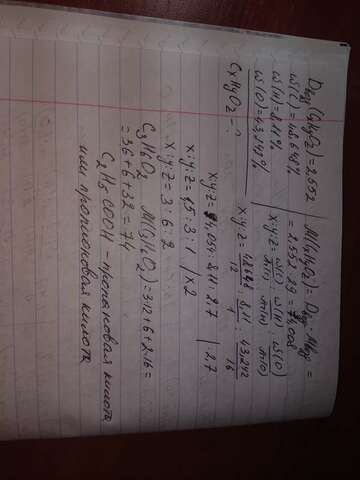 Dвозд(CxHyOz)=2,552
ω(C)=48,648%
ω(H)=8,11%
ω(O)=43,243%
CxHyOz - ?
M(CxHyOz)=Dвозд·Mвозд=
=2,552·29=74,008
x:y:z=ω(C)/m(C):ω(H)/m(H):ω(O)/m(O)
x:y:z=48,648/12:8,11/1:43,242/16
x:y:z=4,054:8,11:2,7 |2,7
x:y:z=1,5:3:1 |x2
x:y:z=3:6:2
C3H6O2 M(C3H6O2)=3·12+6+2·16=
=36+6+32=74
C2H5COOH - пропановая кислота
или пропионовая кислота